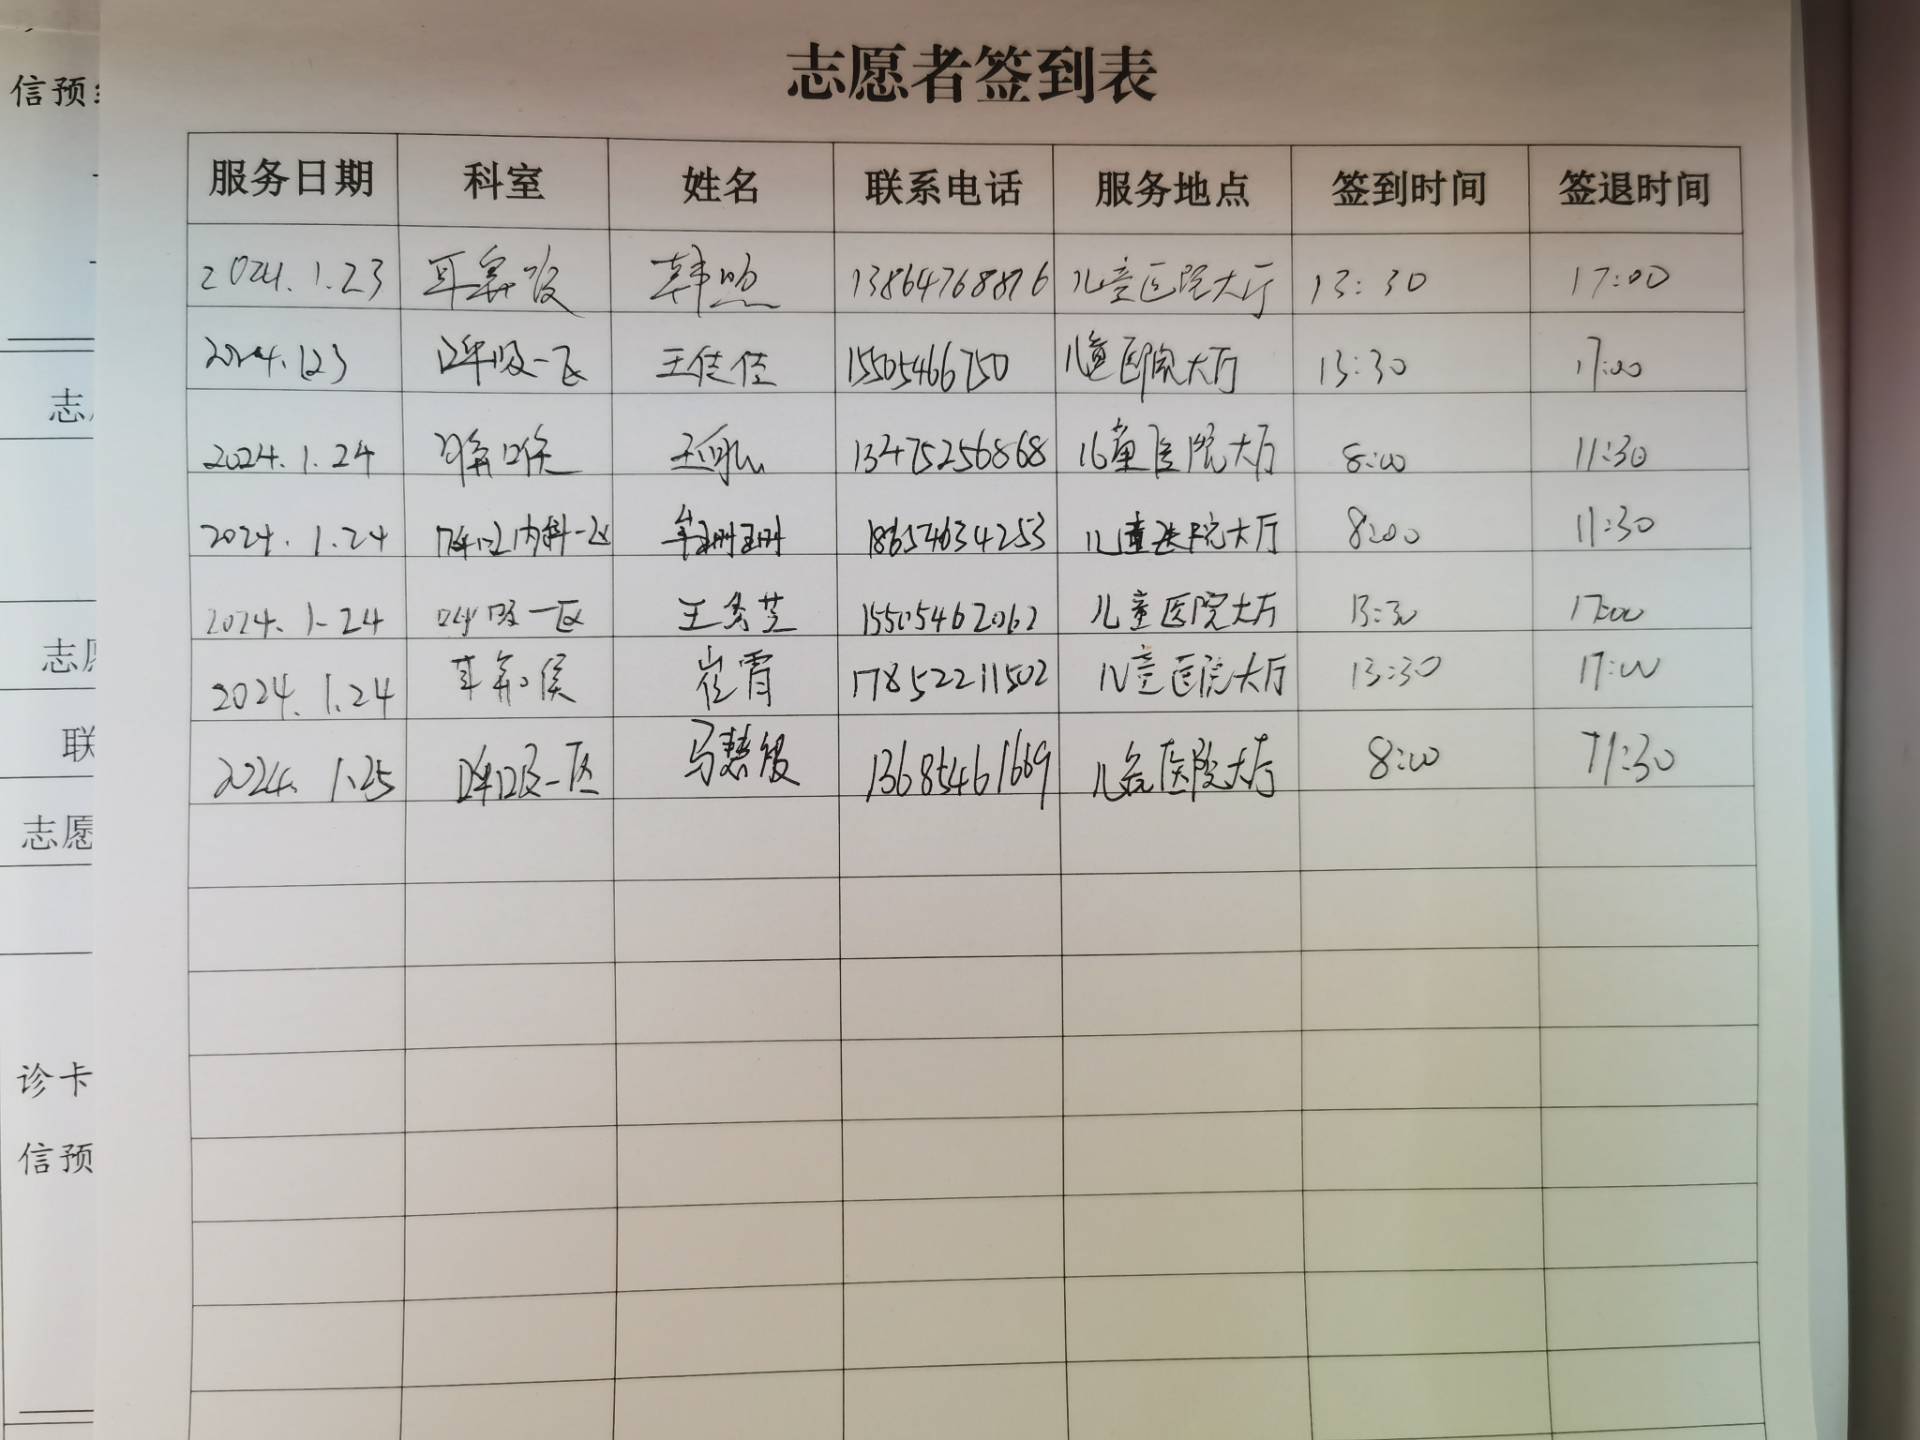 志愿者签到表
服务日期 科室 姓名 联系电话 服务地点 签到时间 签退时间
2024.1.23 耳鼻喉 韩 13864768876 儿童医院大厅 13:30 17:00
2024.1.23 呼吸一区 王佳佳 15505466750 儿童医院大厅 13:30 17:00
2024.1.24 耳鼻喉 13475256868 儿童医院大厅 8:00 11:30
2024.1.24 呼吸内科一区 牟珊珊 18654634253 儿童医院大厅 8:00 11:30
2024.1.24 呼吸一区 王秀芝 15505462062 儿童医院大厅 13:30 17:00
2024.1.24 耳鼻喉 崔霄 17852211502 儿童医院大厅 13:30 17:00
2024.1.25 呼吸一区 马慧 13685461669 儿童医院大厅 8:00 11:30
信预
志
志愿
联
志愿
诊卡
信预